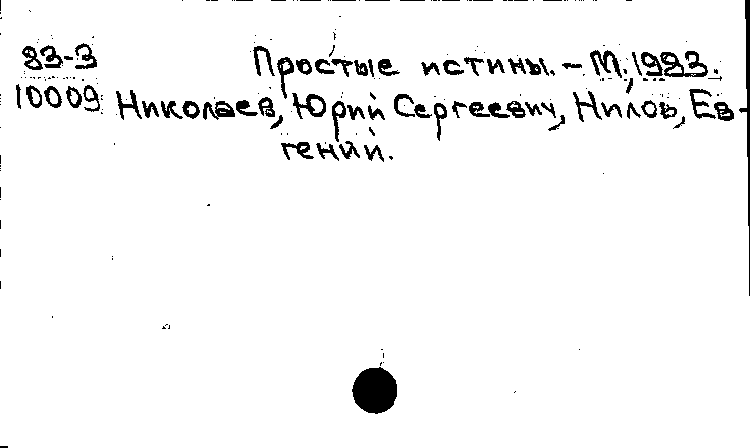 83-3 Простые истины. - М., 1983.
10009 Николаев, Юрий Сергеевич, Нилов, Ев-
гений.